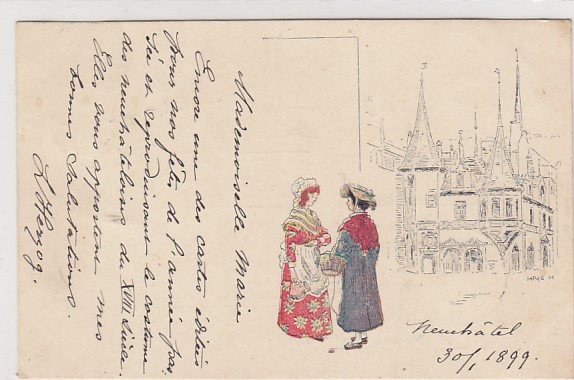 Mademoiselle Marie
Encore une des cartes éditées
pour nos fêtes de l'année pas-
sée et reproduisant le costume
des neuchâteloises du XVIII siècle.
Elles vous apportent mes
bonnes salutations.
L. Herzog.
Neuchâtel
30/1 1899.